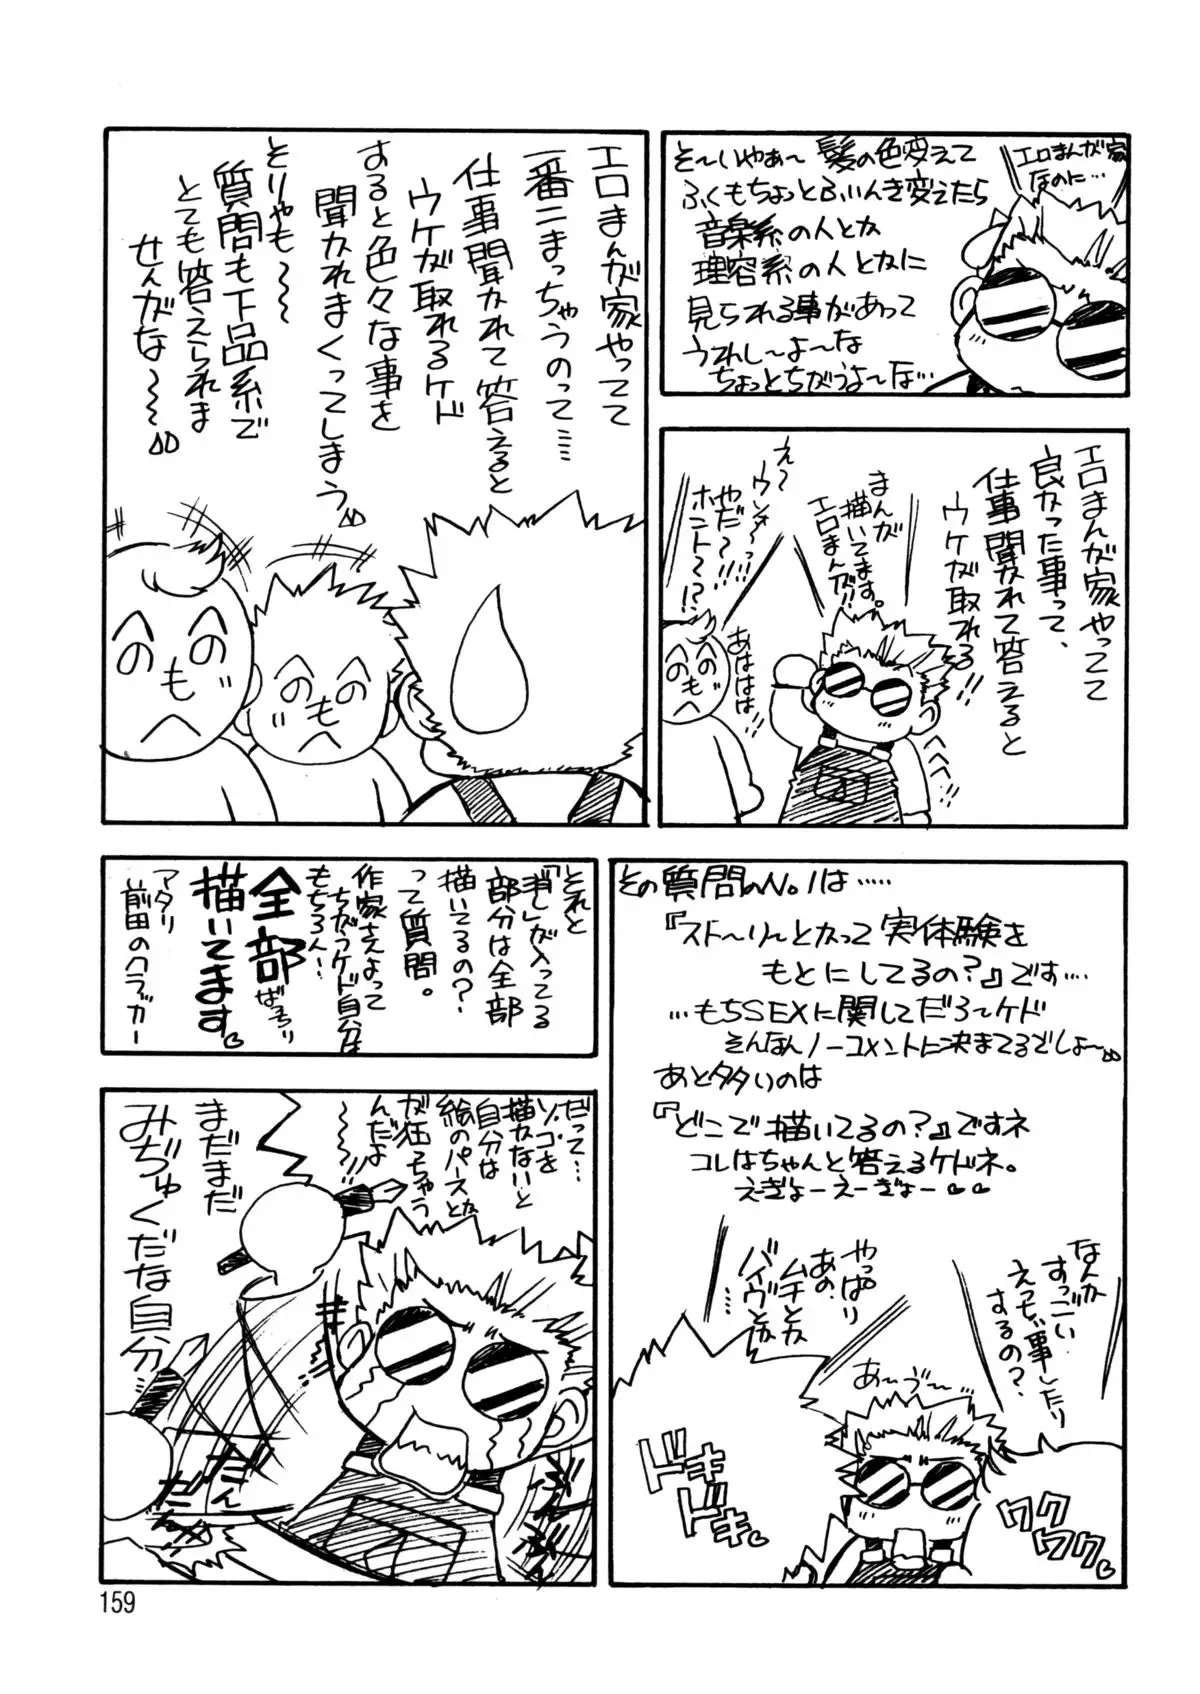 そ〜いやぁ〜髪の色変えて
ふくもちょっとふいんき変えたら
音楽系の人とか
理容系の人とかに
見られる事があって
うれし〜よ〜な
ちょっとちがうよ〜な…
エロまんが家
なのに…
エロまんが家やってて
良かった事って、
仕事聞かれて答えると
ウケが取れる!!
まんが
描いてます。
エロまんが!!
え〜
ウッソ〜っ!!
やだ〜!!
ホント〜!?
あははは
エロまんが家やってて
一番こまっちゃうのって……
仕事聞かれて答えると
ウケが取れるケド
あると色々な事を
聞かれまくってしまう
とりゃも〜〜
質問も下品系で
とても答えられま
せんがな〜〜
その質問のNo.1は……
『スト〜リ〜とかって実体験を
もとにしてるの?』です…
…もちSEXに関してだろ〜ケド
そんなんノーコメントに決まてるでしょ〜
あと多いのは
『どこで描いてるの?』ですネ
コレはちゃんと答えるケドネ。
えぎょーえーぎょー♡♡
なんか
すっごい
えっちい事したり
するの?
やっぱり
あの、
ムチとか
バイヴとか
…
あ〜う〜
ドキ
ドキ♡
ワク
ワク♡
それと
『消し』が入ってる
部分は全部
描いてるの?
って質問。
作家さんよって
ちがうケド自分は
もちろん!
全部ばっちり
描いてます♡
アタリ
前田のクラッカー
だって…
ソコを
描かないと
自分は
絵のパースとか
が狂っちゃう
んだよ
〜〜!!
まだまだ
みぢゅくだな自分…
だん
だん
159